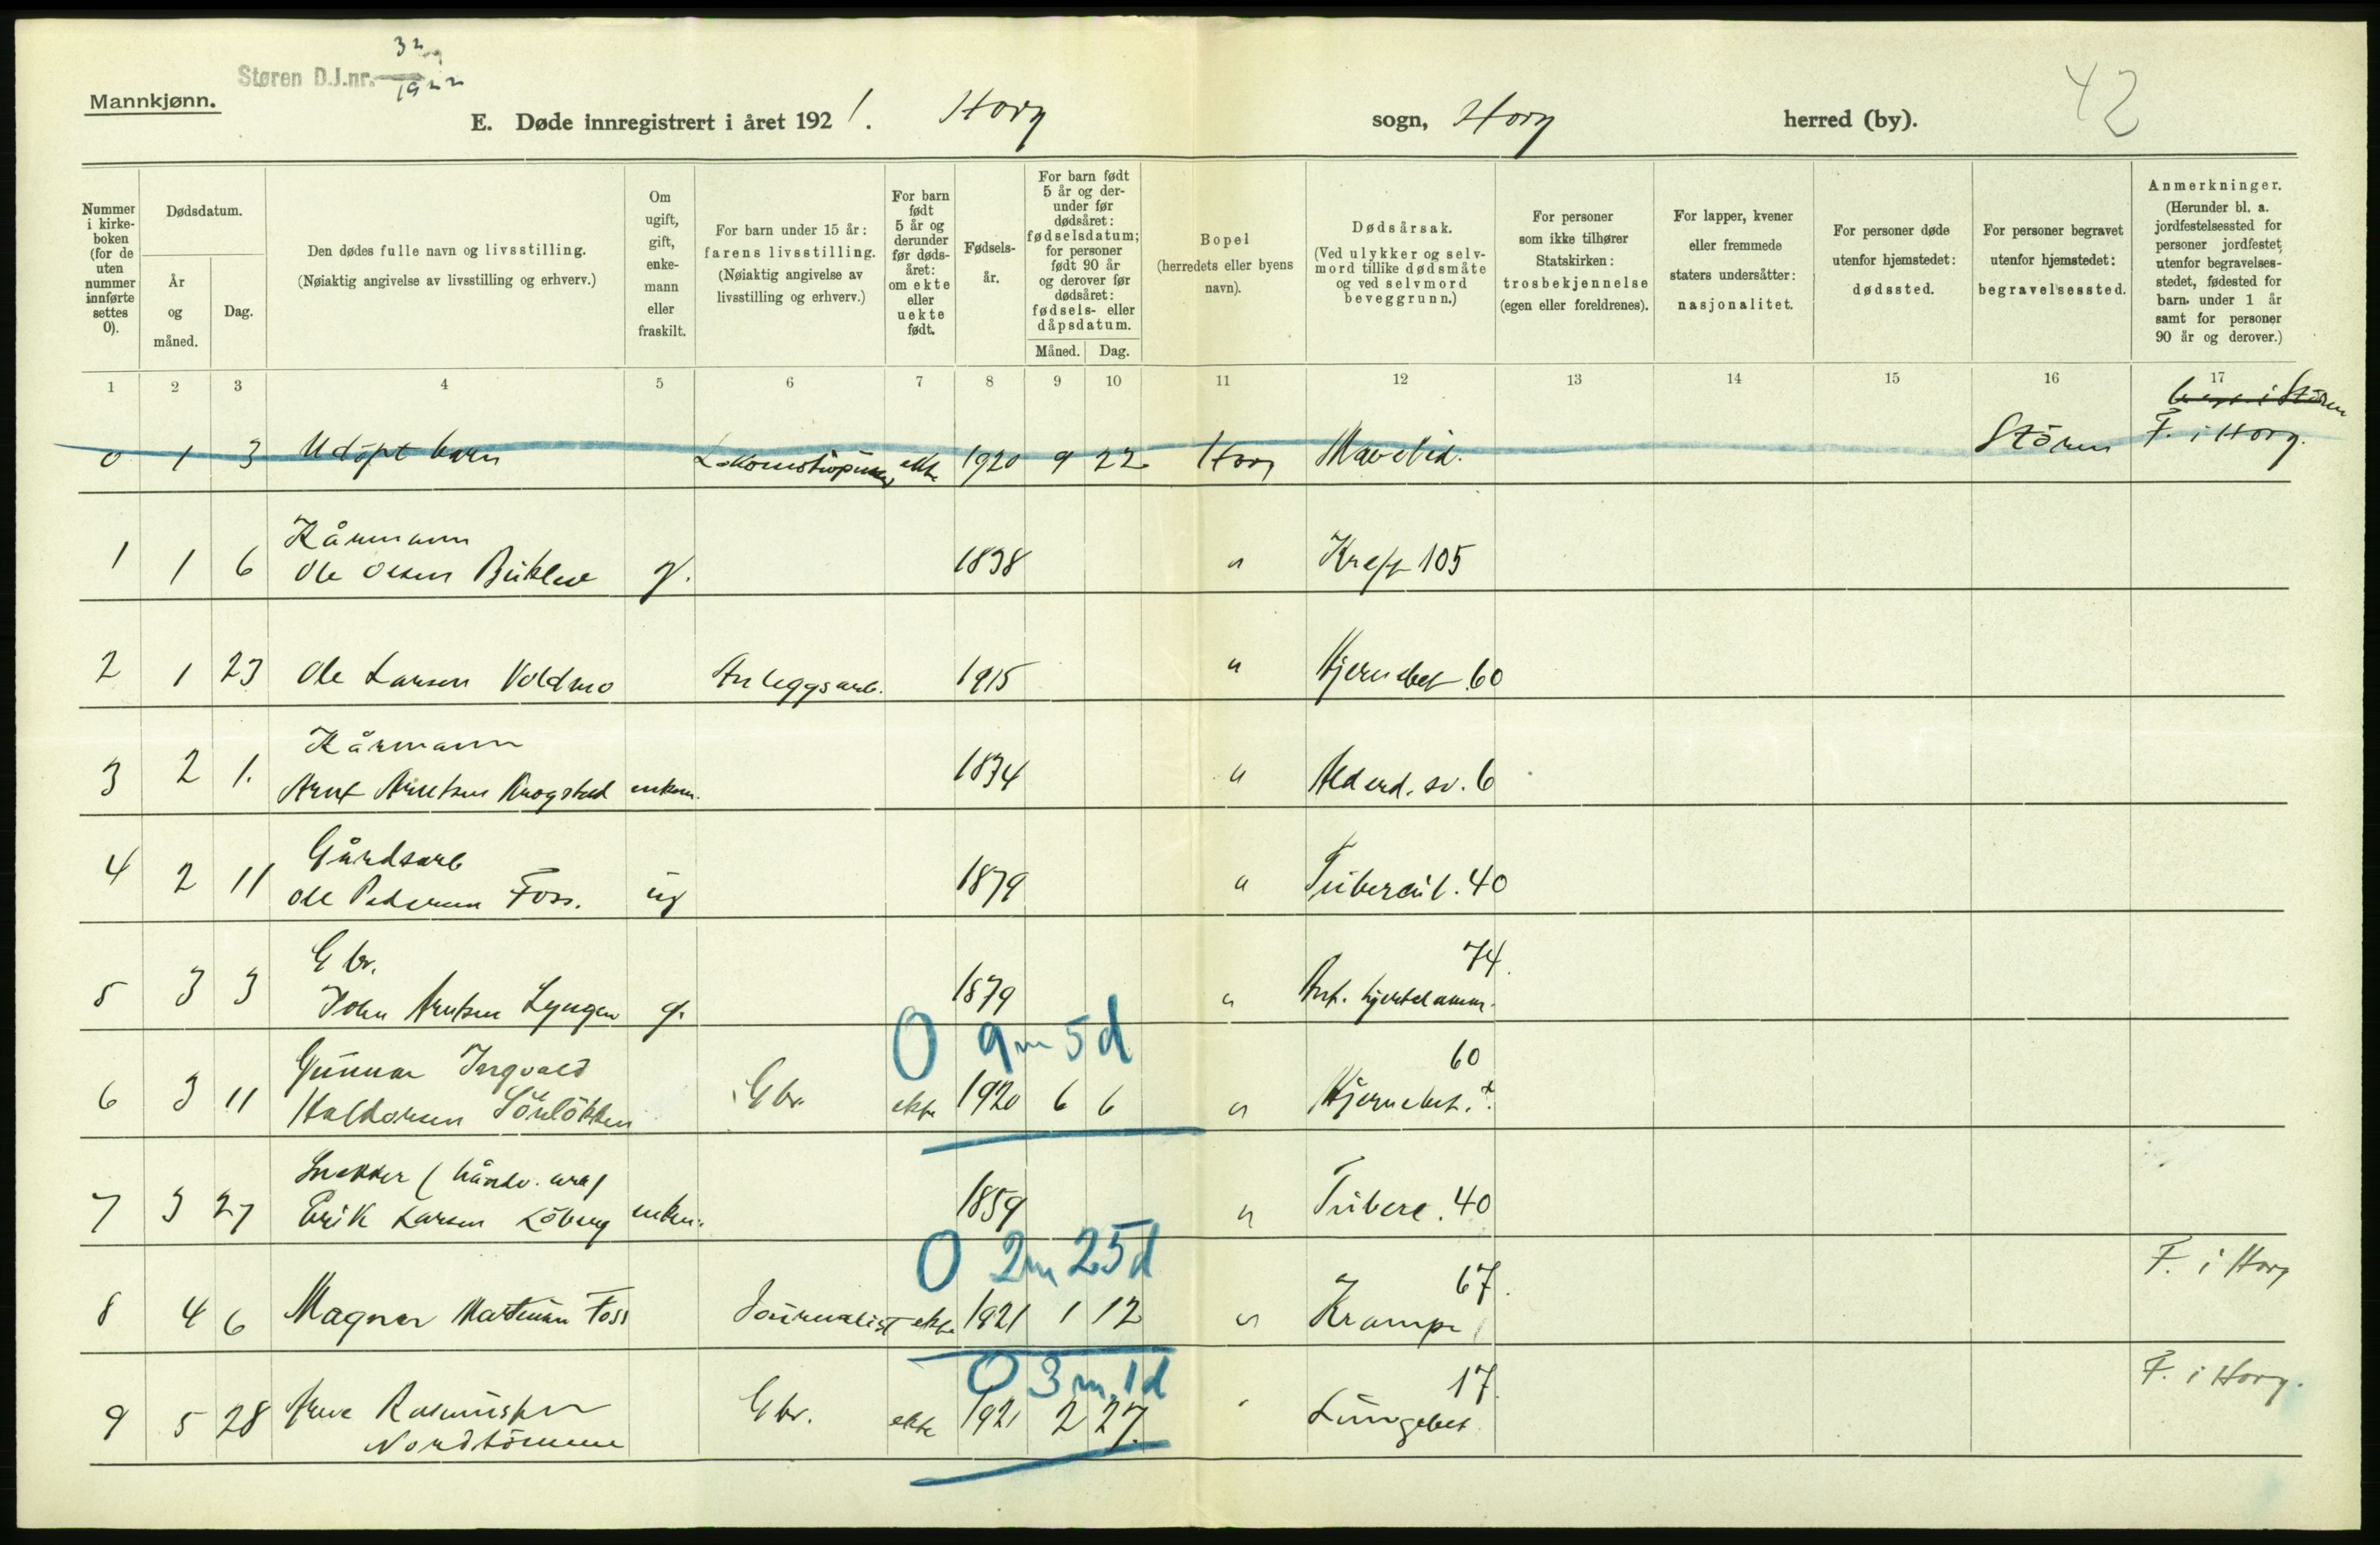 Mannkjønn.
Støren D.J.nr. 32/1922
E. Døde innregistrert i året 1921. Horg sogn, Horg herred (by). 42
Nummer i kirkeboken (for de uten nummer innførte settes 0).
Dødsdatum.
År og måned.
Dag.
Den dødes fulle navn og livsstilling.
(Nøiaktig angivelse av livsstilling og erhverv.)
Om ugift, gift, enkemann eller fraskilt.
For barn under 15 år: farens livsstilling.
(Nøiaktig angivelse av livsstilling og erhverv.)
For barn født 5 år og derunder før dødsåret: om ekte eller uekte født.
Fødselsår.
For barn født 5 år og derunder før dødsåret: fødselsdatum; for personer født 90 år og derover før dødsåret: fødsels- eller dåpsdatum.
Måned. Dag.
Bopel
(herredets eller byens navn).
Dødsårsak.
(Ved ulykker og selvmord tillike dødsmåte og ved selvmord beveggrunn.)
For personer som ikke tilhører Statskirken: trosbekjennelse (egen eller foreldrenes).
For lapper, kvener eller fremmede staters undersåtter: nasjonalitet.
For personer døde utenfor hjemstedet: dødssted.
For personer begravet utenfor hjemstedet: begravelsessted.
Anmerkninger.
(Herunder bl. a. jordfestelsessted for personer jordfestet utenfor begravelsesstedet, fødested for barn under 1 år samt for personer 90 år og derover.)
1 2 3 4 5 6 7 8 9 10 11 12 13 14 15 16 17
i Støren
0 1 3 Udöpt barn ekte 1920 9 22 Horg Stören F. i Horg.
Kårmann
1 1 6 Ole Olsen g. 1838 " Kreft 105
2 1 23 Ole Larsen Voldmo Anleggsarb. 1915 " Hjernebet 60
Kårmann
3 2 1. Arnt Arntsen Krogstad enkem. 1834 " Alderd. sv. 6
Gårdsarb
4 2 11 Ole Pedersen Foss. ug 1879 " Tubercul. 40
G br. 74.
5 3 3 John Arntsen Lyngen g. 1879 " hjertelamm.
0 9m 5d
Gunnar Ingvald 60
6 3 11 Haldorsen Gbr. ekte 1920 6 6 " Hjernebet. ?
Snekker (håndv. arb)
7 3 27 Erik Larsen Löberg enkem. 1859 " Tuberc. 40
0 2m 25d
67. F. i Horg
8 4 6 Magnar Martinus Foss Journalist ekte 1921 1 12 " Krampe
0 3m 1d
17. F. i Horg.
9 5 28 Arne Rasmussen Gbr. ekte 1921 2 27. " Lungebet